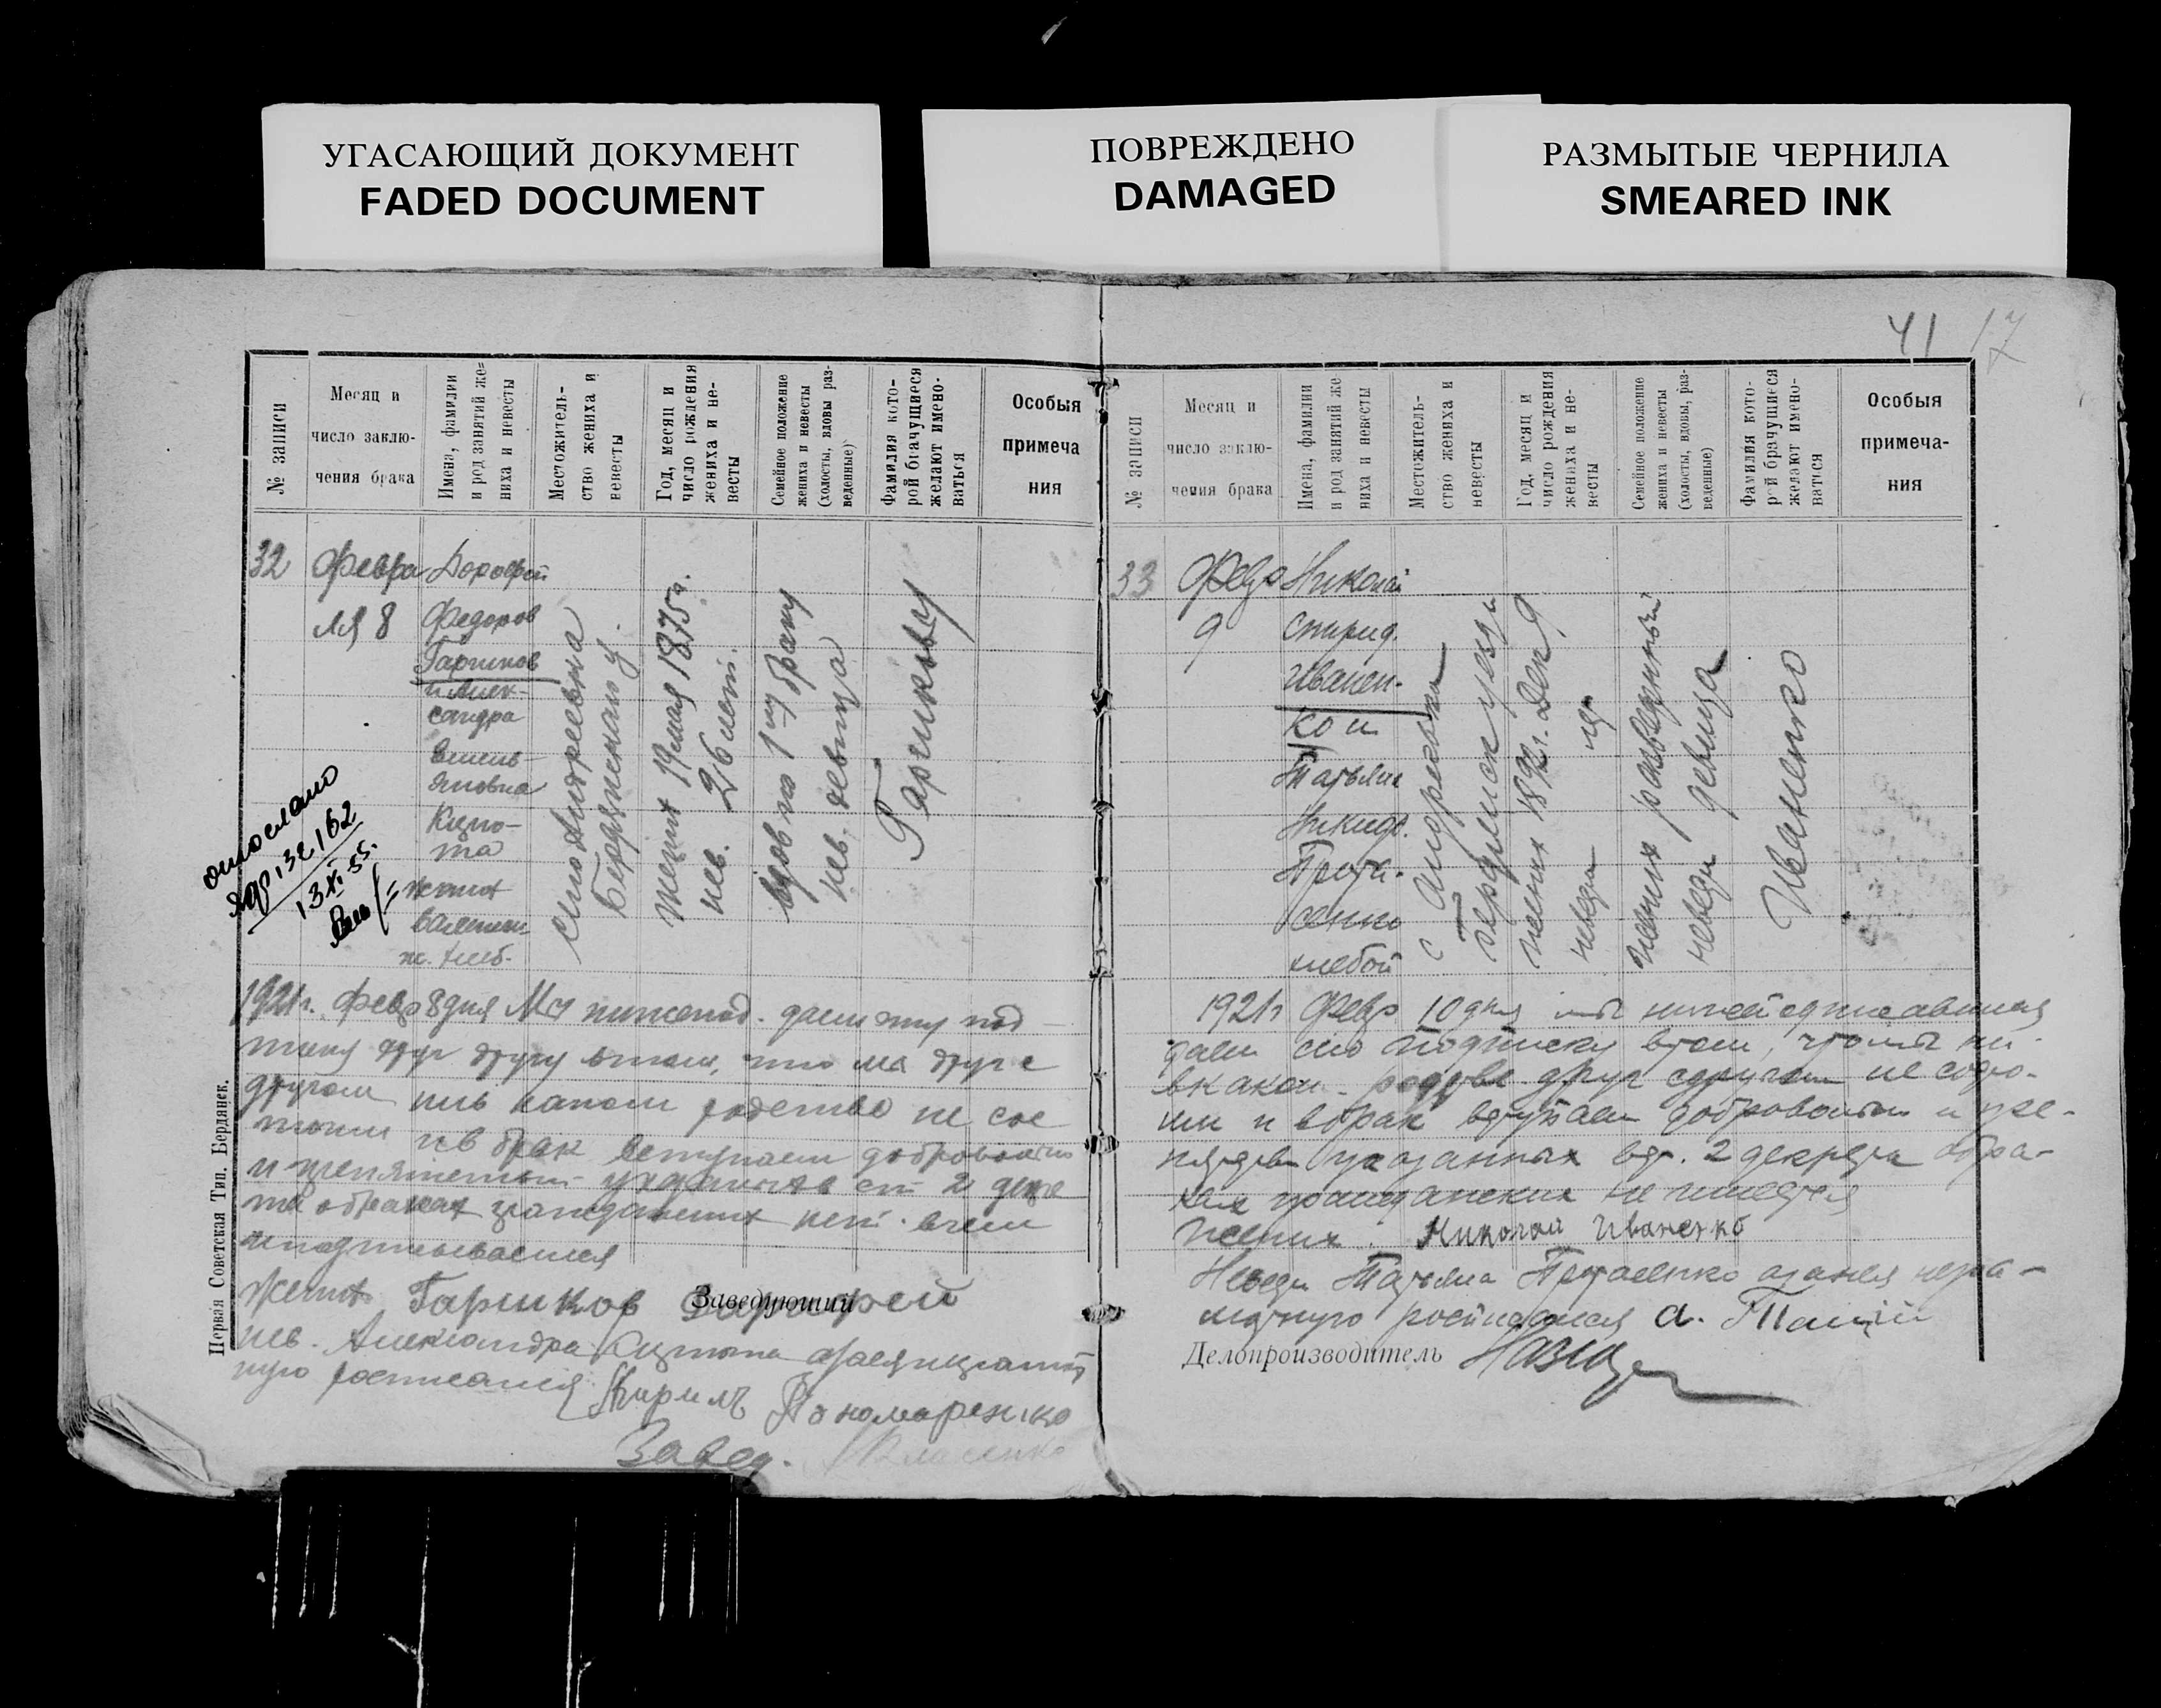 УГАСАЮЩИЙ ДОКУМЕНТ
FADED DOCUMENT
ПОВРЕЖДЕНО
DAMAGED
РАЗМЫТЫЕ ЧЕРНИЛА
SMEARED INK
41 17
№ записи
Месяц и
число заклю-
чения брака
Имена, фамилии
и род занятий же-
ниха и невесты
Местожитель-
ство жениха и
невесты
Год, месяц и
число рождения
жениха и не-
весты
Семейное положение
жениха и невесты
(холосты, вдовы раз-
веденные)
Фамилия кото-
рой брачущиеся
желают имено-
ваться
Особыя
примеча
ния
32
Февра
ля 8
Дорофей
Федоров
Гаршков
и Алек-
сандра
Емель-
яновна
Кцио-
та
жених
ж. хлеб-
Бердянского у.
жених 19 мая 1875 г.
нев. 26 лет.
вдов по 1 му браку
нев. девица
Гаршковы
отослано
132162
13 XI 55.
1921 г. Февр 8 дня Мы нижепод. даем эту под
писку друг другу в том, что мы друг с
другом ни в каком родстве не сос
тоим и в брак вступаем добровольно
и препятствий указанных в ст 2 декре
та о браках гражданских нет. в чем
и подписываемся
Жених Гаршков Дорофей
Заведующий
нев. Александра
расписался Кирилъ Пономаренко
Завед. Власенко
Первая Советская Тип. Бердянск.
№ записи
Месяц и
число заклю-
чения брака
Имена, фамилии
и род занятий же
ниха и невесты
Местожитель-
ство жениха и
невесты
Год, месяц и
число рождения
жениха и не-
весты
Семейное положение
жениха и невесты
(холосты, вдовы, раз-
веденные)
Фамилия кото-
рой брачущиеся
желают имено-
ваться
Особыя
примеча-
ния
33
Февр
9
Николай
Спирид.
Иванен-
ко и
Татьяна
Никиф.
Прота-
сенко
хлебой
с Андреевка
Бердянск уезда
жених 189 г. Дек 9
неведи
жених разведенный
неведи девица
Иваненко
1921 г Февр 10 дня мы нижейодписавшися
даем сию подписку в том, что мы ни
в каком родстве друг с другом не состо-
им и в брак вступаем добровольно и пре-
пядсвий указанных в ст. 2 декрета о бра-
ках гражданских не имеется
Жених Николай Иваненко
Неведи Татьяна Протасенко а за нея негра-
мотную росписался
Делопроизводитель